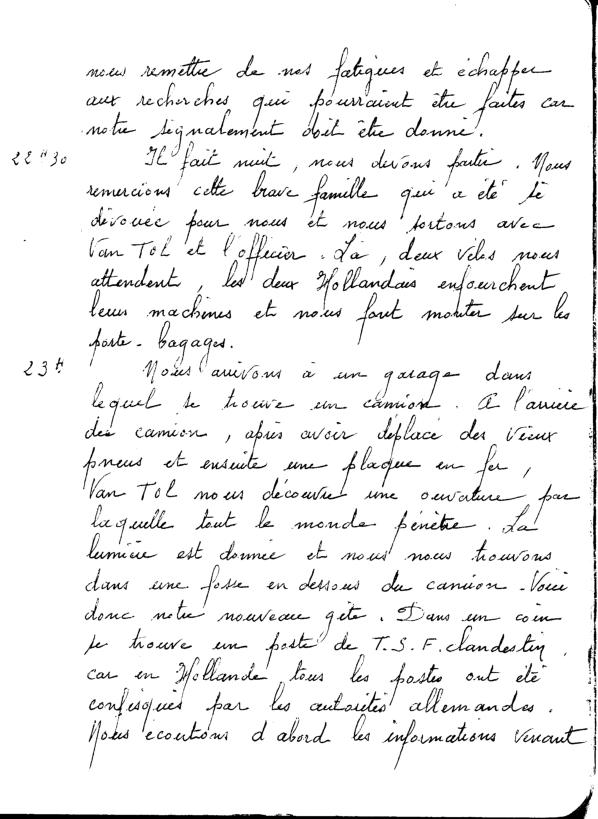 nous remettre de nos fatigues et échapper
aux recherches qui pourraient être faites car
notre signalement doit être donné.
22H30 Il fait nuit, nous devons partir. Nous
remercions cette brave famille qui a été si
dévouée pour nous et nous sortons avec
Van Tol et l'officier. Là, deux vélos nous
attendent, les deux Hollandais enfourchent
leurs machines et nous font monter sur les
porte-bagages.
23H Nous arrivons à un garage dans
lequel se trouve un camion. A l'arrière
du camion, après avoir déplacé des vieux
pneus et ensuite une plaque en fer,
Van Tol nous découvre une ouverture par
laquelle tout le monde pénètre. La
lumière est donnée et nous nous trouvons
dans une fosse en dessous du camion. Voici
donc notre nouveau gîte. Dans un coin
se trouve un poste de T.S.F. clandestin,
car en Hollande tous les postes ont été
confisqués par les autorités allemandes.
Nous écoutons d'abord les informations venant